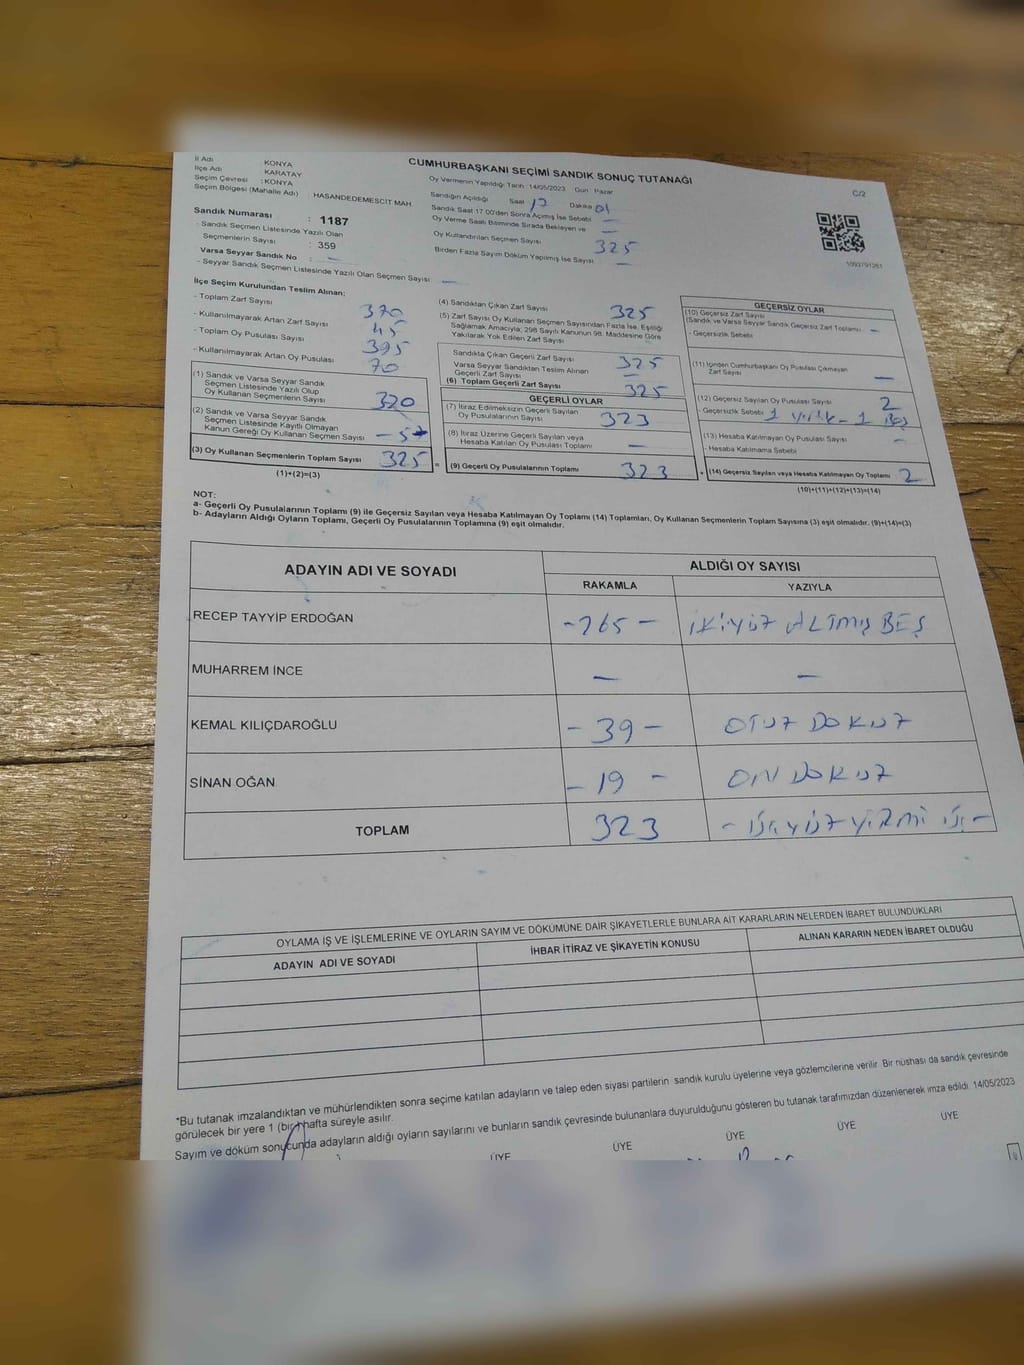 İl Adı : KONYA
İlçe Adı : KARATAY
Seçim Çevresi : KONYA
Seçim Bölgesi (Mahalle Adı) : HASANDEDEMESCİT MAH.
Sandık Numarası : 1187
- Sandık Seçmen Listesinde Yazılı Olan
Seçmenlerin Sayısı : 359
Varsa Seyyar Sandık No : -
- Seyyar Sandık Seçmen Listesinde Yazılı Olan Seçmen Sayısı : -
CUMHURBAŞKANI SEÇİMİ SANDIK SONUÇ TUTANAĞI
C/2
Oy Vermenin Yapıldığı Tarih : 14/05/2023 Gün : Pazar
Sandığın Açıldığı Saat 17 Dakika 01
Sandık Saat 17.00'den Sonra Açılmış İse Sebebi -
Oy Verme Saati Bitiminde Sırada Bekleyen ve
Oy Kullandırılan Seçmen Sayısı -
325
Birden Fazla Sayım Döküm Yapılmış İse Sayısı -
1093791261
İlçe Seçim Kurulundan Teslim Alınan;
- Toplam Zarf Sayısı 370
- Kullanılmayarak Artan Zarf Sayısı 45
- Toplam Oy Pusulası Sayısı 395
- Kullanılmayarak Artan Oy Pusulası 70
(1) Sandık ve Varsa Seyyar Sandık
Seçmen Listesinde Yazılı Olup
Oy Kullanan Seçmenlerin Sayısı 320
(2) Sandık ve Varsa Seyyar Sandık
Seçmen Listesinde Kayıtlı Olmayan
Kanun Gereği Oy Kullanan Seçmen Sayısı - 5 -
(3) Oy Kullanan Seçmenlerin Toplam Sayısı 325
(1)+(2)=(3)
(4) Sandıktan Çıkan Zarf Sayısı 325
(5) Zarf Sayısı Oy Kullanan Seçmen Sayısından Fazla İse, Eşitliği
Sağlamak Amacıyla, 298 Sayılı Kanunun 98. Maddesine Göre
Yakılarak Yok Edilen Zarf Sayısı
Sandıkta Çıkan Geçerli Zarf Sayısı 325
Varsa Seyyar Sandıktan Teslim Alınan
Geçerli Zarf Sayısı -
(6) Toplam Geçerli Zarf Sayısı 325
GEÇERLİ OYLAR
(7) İtiraz Edilmeksizin Geçerli Sayılan
Oy Pusulalarının Sayısı 323
(8) İtiraz Üzerine Geçerli Sayılan veya
Hesaba Katılan Oy Pusulası Toplamı -
(9) Geçerli Oy Pusulalarının Toplamı 323
GEÇERSİZ OYLAR
(10) Geçersiz Zarf Sayısı
(Sandık ve Varsa Seyyar Sandık Geçersiz Zarf Toplamı) -
- Geçersizlik Sebebi
(11) İçinden Cumhurbaşkanı Oy Pusulası Çıkmayan
Zarf Sayısı -
(12) Geçersiz Sayılan Oy Pusulası Sayısı 2
- Geçersizlik Sebebi 1 - 1
(13) Hesaba Katılmayan Oy Pusulası Sayısı -
- Hesaba Katılmama Sebebi
(14) Geçersiz Sayılan veya Hesaba Katılmayan Oy Toplamı 2
(10)+(11)+(12)+(13)=(14)
NOT:
a- Geçerli Oy Pusulalarının Toplamı (9) ile Geçersiz Sayılan veya Hesaba Katılmayan Oy Toplamı (14) Toplamları, Oy Kullanan Seçmenlerin Toplam Sayısına (3) eşit olmalıdır. (9)+(14)=(3)
b- Adayların Aldığı Oyların Toplamı, Geçerli Oy Pusulalarının Toplamına (9) eşit olmalıdır.
ADAYIN ADI VE SOYADI
ALDIĞI OY SAYISI
RAKAMLA YAZIYLA
RECEP TAYYİP ERDOĞAN - 265 - İKİYÜZ ALTMIŞ BEŞ
MUHARREM İNCE - -
KEMAL KILIÇDAROĞLU - 39 - OTUZ DOKUZ
SİNAN OĞAN - 19 - ON DOKUZ
TOPLAM 323 - ÜÇYÜZ YİRMİ ÜÇ -
OYLAMA İŞ VE İŞLEMLERİNE VE OYLARIN SAYIM VE DÖKÜMÜNE DAİR ŞİKAYETLERLE BUNLARA AİT KARARLARIN NELERDEN İBARET BULUNDUKLARI
ADAYIN ADI VE SOYADI İHBAR İTİRAZ VE ŞİKAYETİN KONUSU ALINAN KARARIN NEDEN İBARET OLDUĞU
*Bu tutanak imzalandıktan ve mühürlendikten sonra seçime katılan adayların ve talep eden siyasi partilerin sandık kurulu üyelerine veya gözlemcilerine verilir. Bir nüshası da sandık çevresinde
görülecek bir yere 1 (bir) hafta süreyle asılır.
Sayım ve döküm sonucunda adayların aldığı oyların sayılarını ve bunların sandık çevresinde bulunanlara duyurulduğunu gösteren bu tutanak tarafımızdan düzenlenerek imza edildi. 14/05/2023
ÜYE ÜYE ÜYE ÜYE ÜYE